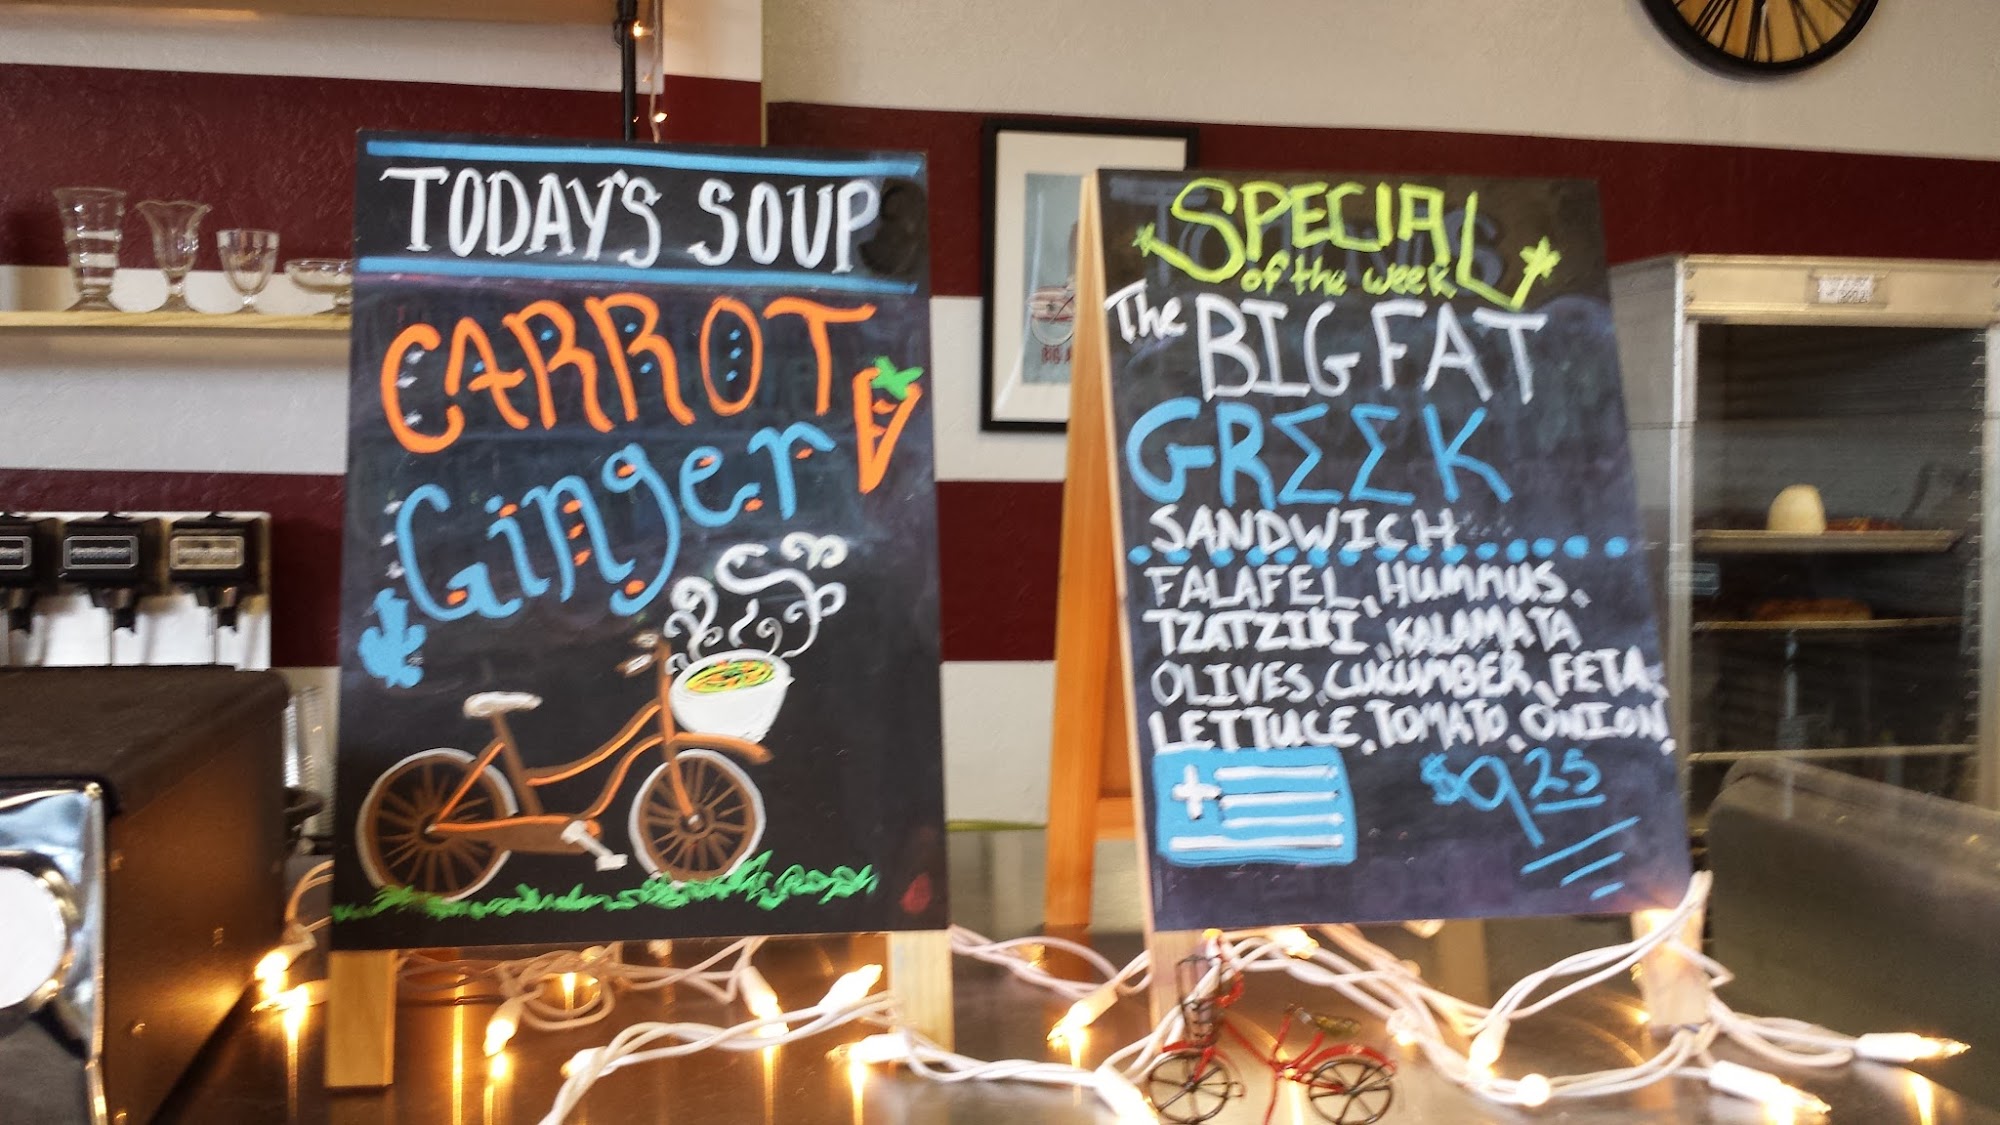 TODAY'S SOUP
CARROT
Ginger
SPECIAL
of the week
The BIG FAT
GRΣΣK
SANDWICH
FALAFEL, HUMMUS,
TZATZIKI, KALAMATA
OLIVES, CUCUMBER, FETA,
LETTUCE, TOMATO, ONION,
$9.25
BIG